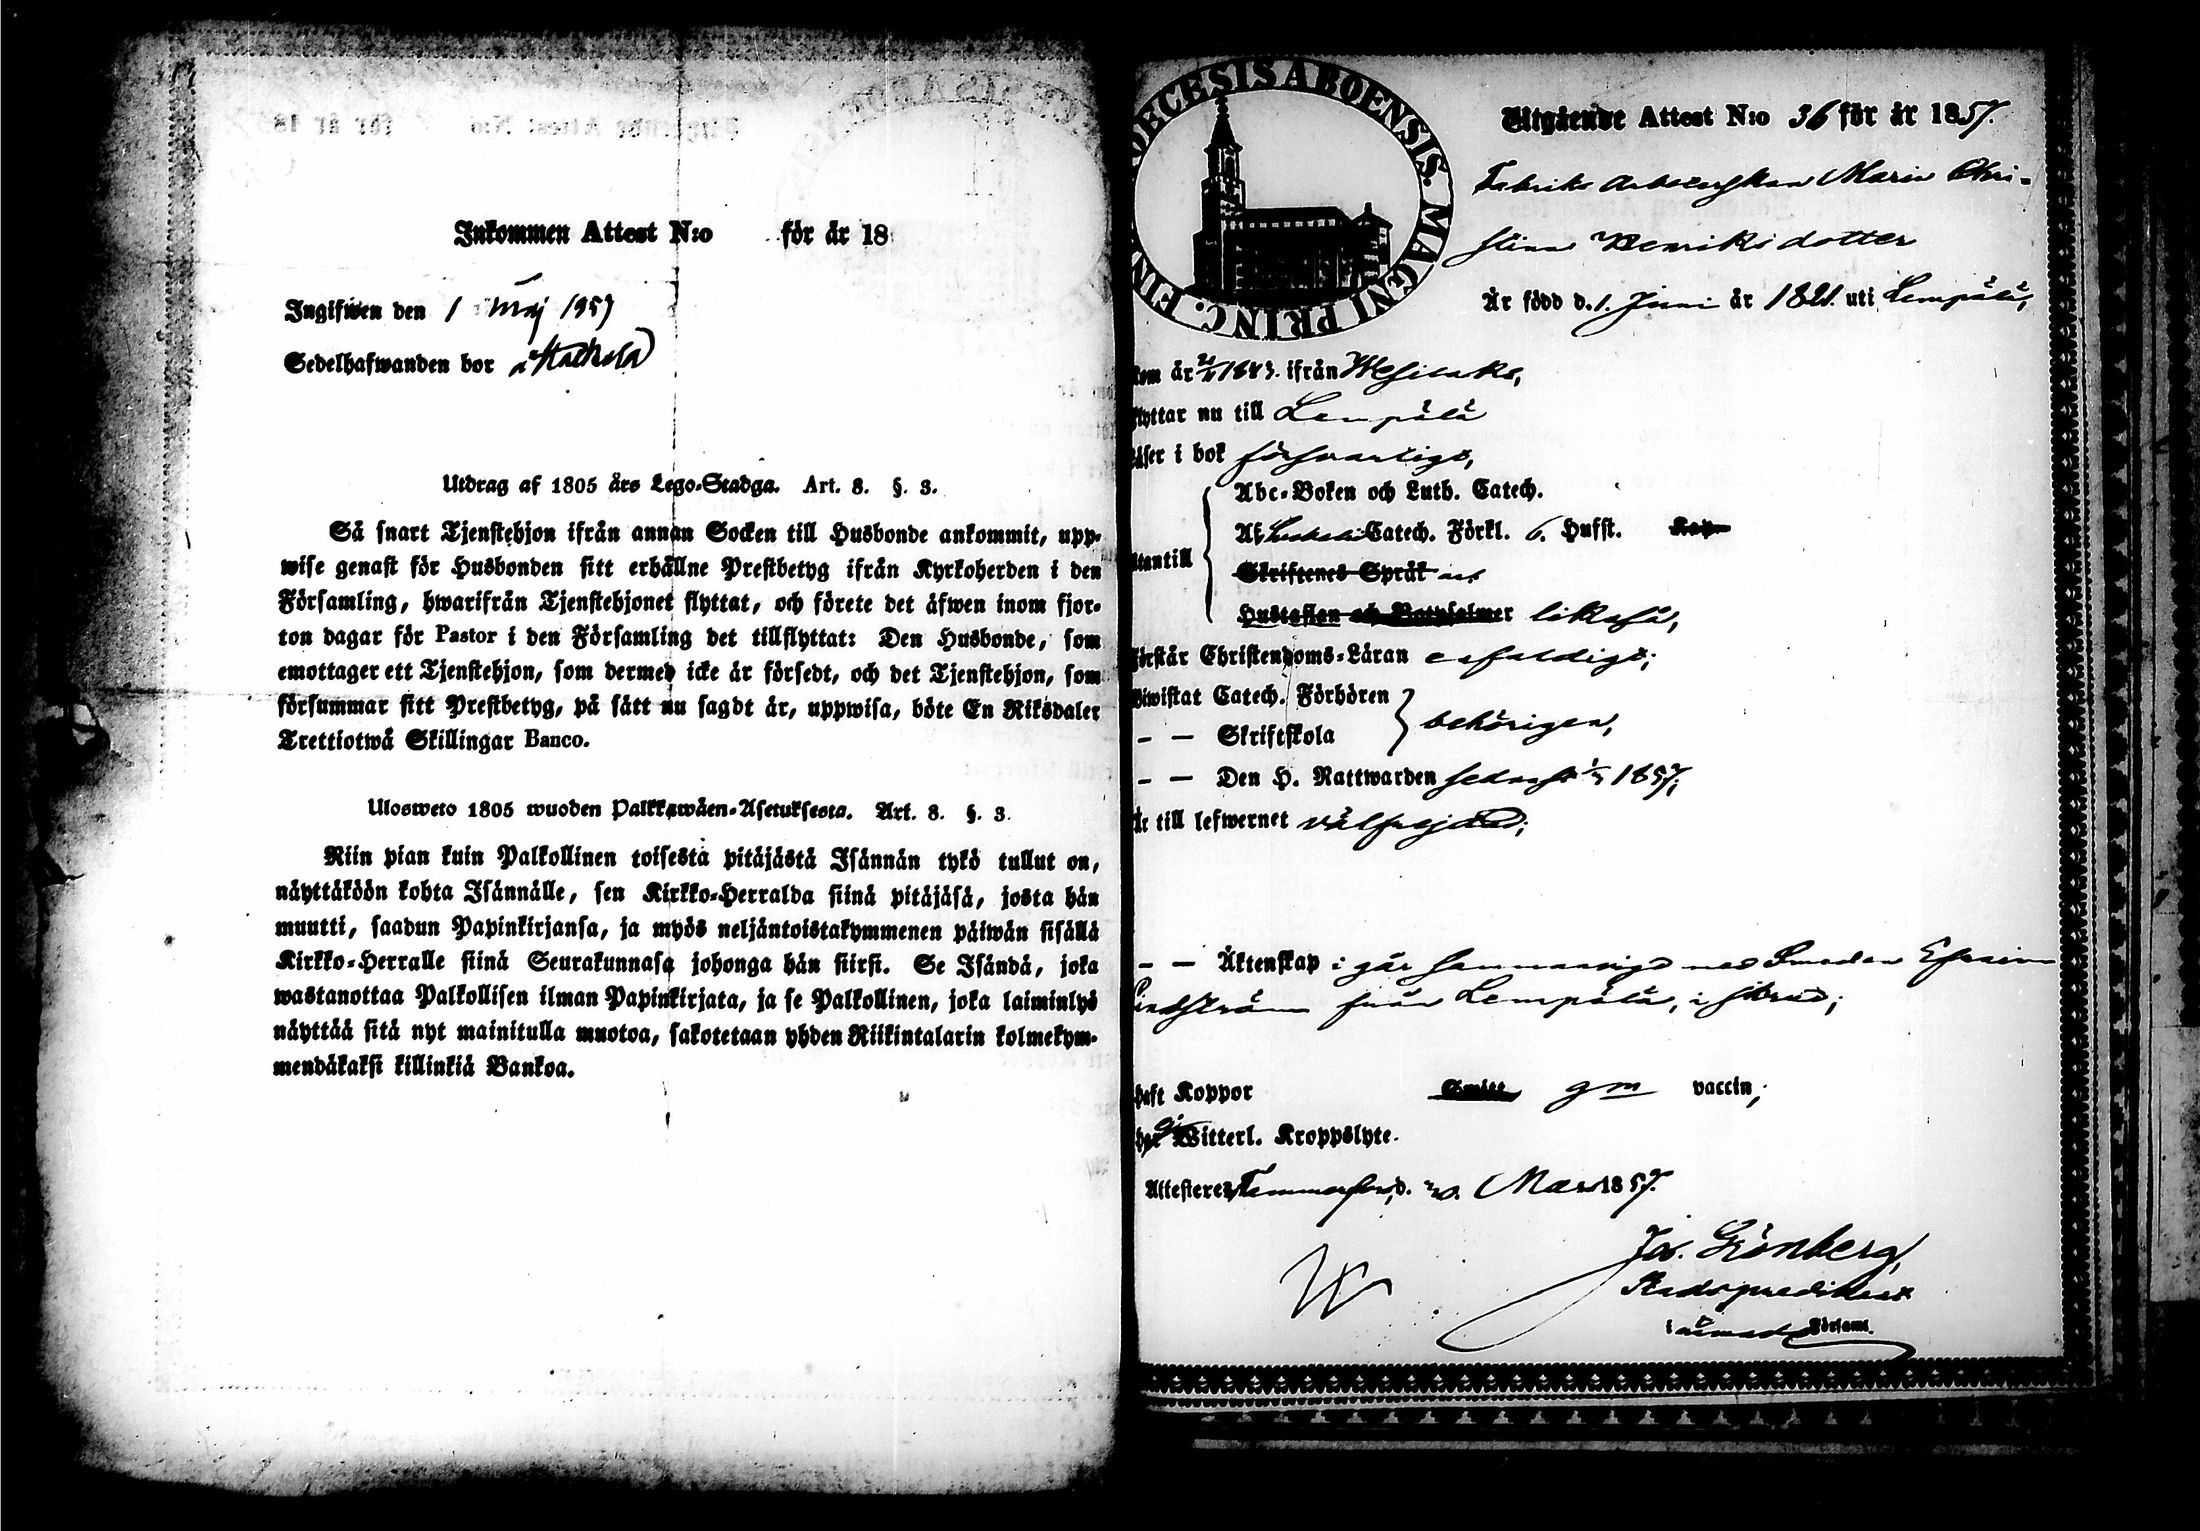 Inkommen Attest N:o för år 18
Ingifwen den 1 Maj 1857
Sedelhafwanden bor
Utdrag af 1805 års Lego-Stadga. Art. 8. §. 3.
Så snart Tjenstehjon ifrån annan Socken till Husbonde ankommit, upp-
wise genast för Husbonden sitt erhållne Prestbetyg ifrån Kyrkoherden i den
Församling, hwarifrån Tjenstehjonet flyttat, och förete det äfwen inom fjor-
ton dagar för Pastor i den Församling det tillflyttat: Den Husbonde, som
emottager ett Tjenstehjon, som dermed icke är försedt, och det Tjenstehjon, som
försummar sitt Prestbetyg, på sätt nu sagdt är, uppwisa, böte En Riksdaler
Trettiotwå Skillingar Banco.
Ulosweto 1805 wuoden Palkkawäen-Asetuksesta. Art. 8. §. 3.
Niin pian kuin Palkollinen toisesta pitäjästä Isännän tykö tullut on,
näyttäköön kohta Isännälle, sen Kirkko-Herralda siinä pitäjäsä, josta hän
muutti, saadun Papinkirjansa, ja myös neljäntoistakymmenen päiwän sisällä
Kirkko-Herralle siinä Seurakunnasa johonga hän siirsi. Se Isändä, joka
wastanottaa Palkollisen ilman Papinkirjata, ja se Palkollinen, joka laiminlyö
näyttää sitä nyt mainitulla muotoa, sakotetaan yhden Riikintalarin kolmekym-
mendäkaksi killinkiä Bankoa.
DECESIS ABOENSIS. MAGNI PRINC. FIN
Utgående Attest N:o 36 för år 1857.
Fabriks arbeterskan Maria Chri-
stina Henriksdotter
Är född d. 1. Juni år 1821. uti Lempälä,
kom år 1843. ifrån Wesilaks,
flyttar nu till Lempälä
läser i bok försvarligt,
Abc-Boken och Luth. Catech.
Af Catech. Förkl. 6. Hufst.
utantill
Skriftenes Språk
Hustaflan och Botpsalmer likaså,
Förstår Christendoms-Läran enfaldigt;
Biwistat Catech. Förhören
behörigen,
— — Skriftskola
— — Den H. Nattwarden sednast 1857;
Är till lefwernet välfrejdad;
— — Äktenskap i går sammanvigd med Smeden Efraim
Lindström från Lempälä, i förstad;
haft Koppor Smitt gm vaccin;
har ej Witterl. Kroppslyte.
Attesterer, Tammerfors, d. 20. Mars 1857.
Jos. Grönberg,
Stadspredikant
i nämnda Förhaml.